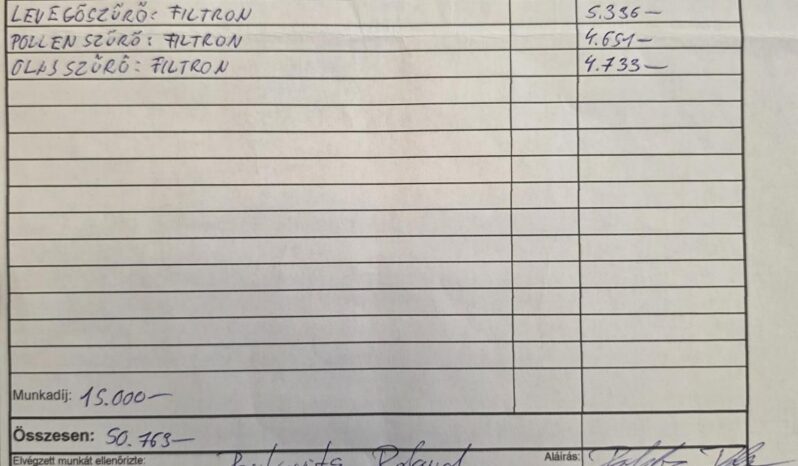 LEVEGŐSZŰRŐ: FILTRON 5.336—
POLLENSZŰRŐ: FILTRON 4.651—
OLAJSZŰRŐ: FILTRON 4.733—
Munkadíj: 15.000—
Összesen: 50.763—
Elvégzett munkát ellenőrizte: Roland Aláírás: